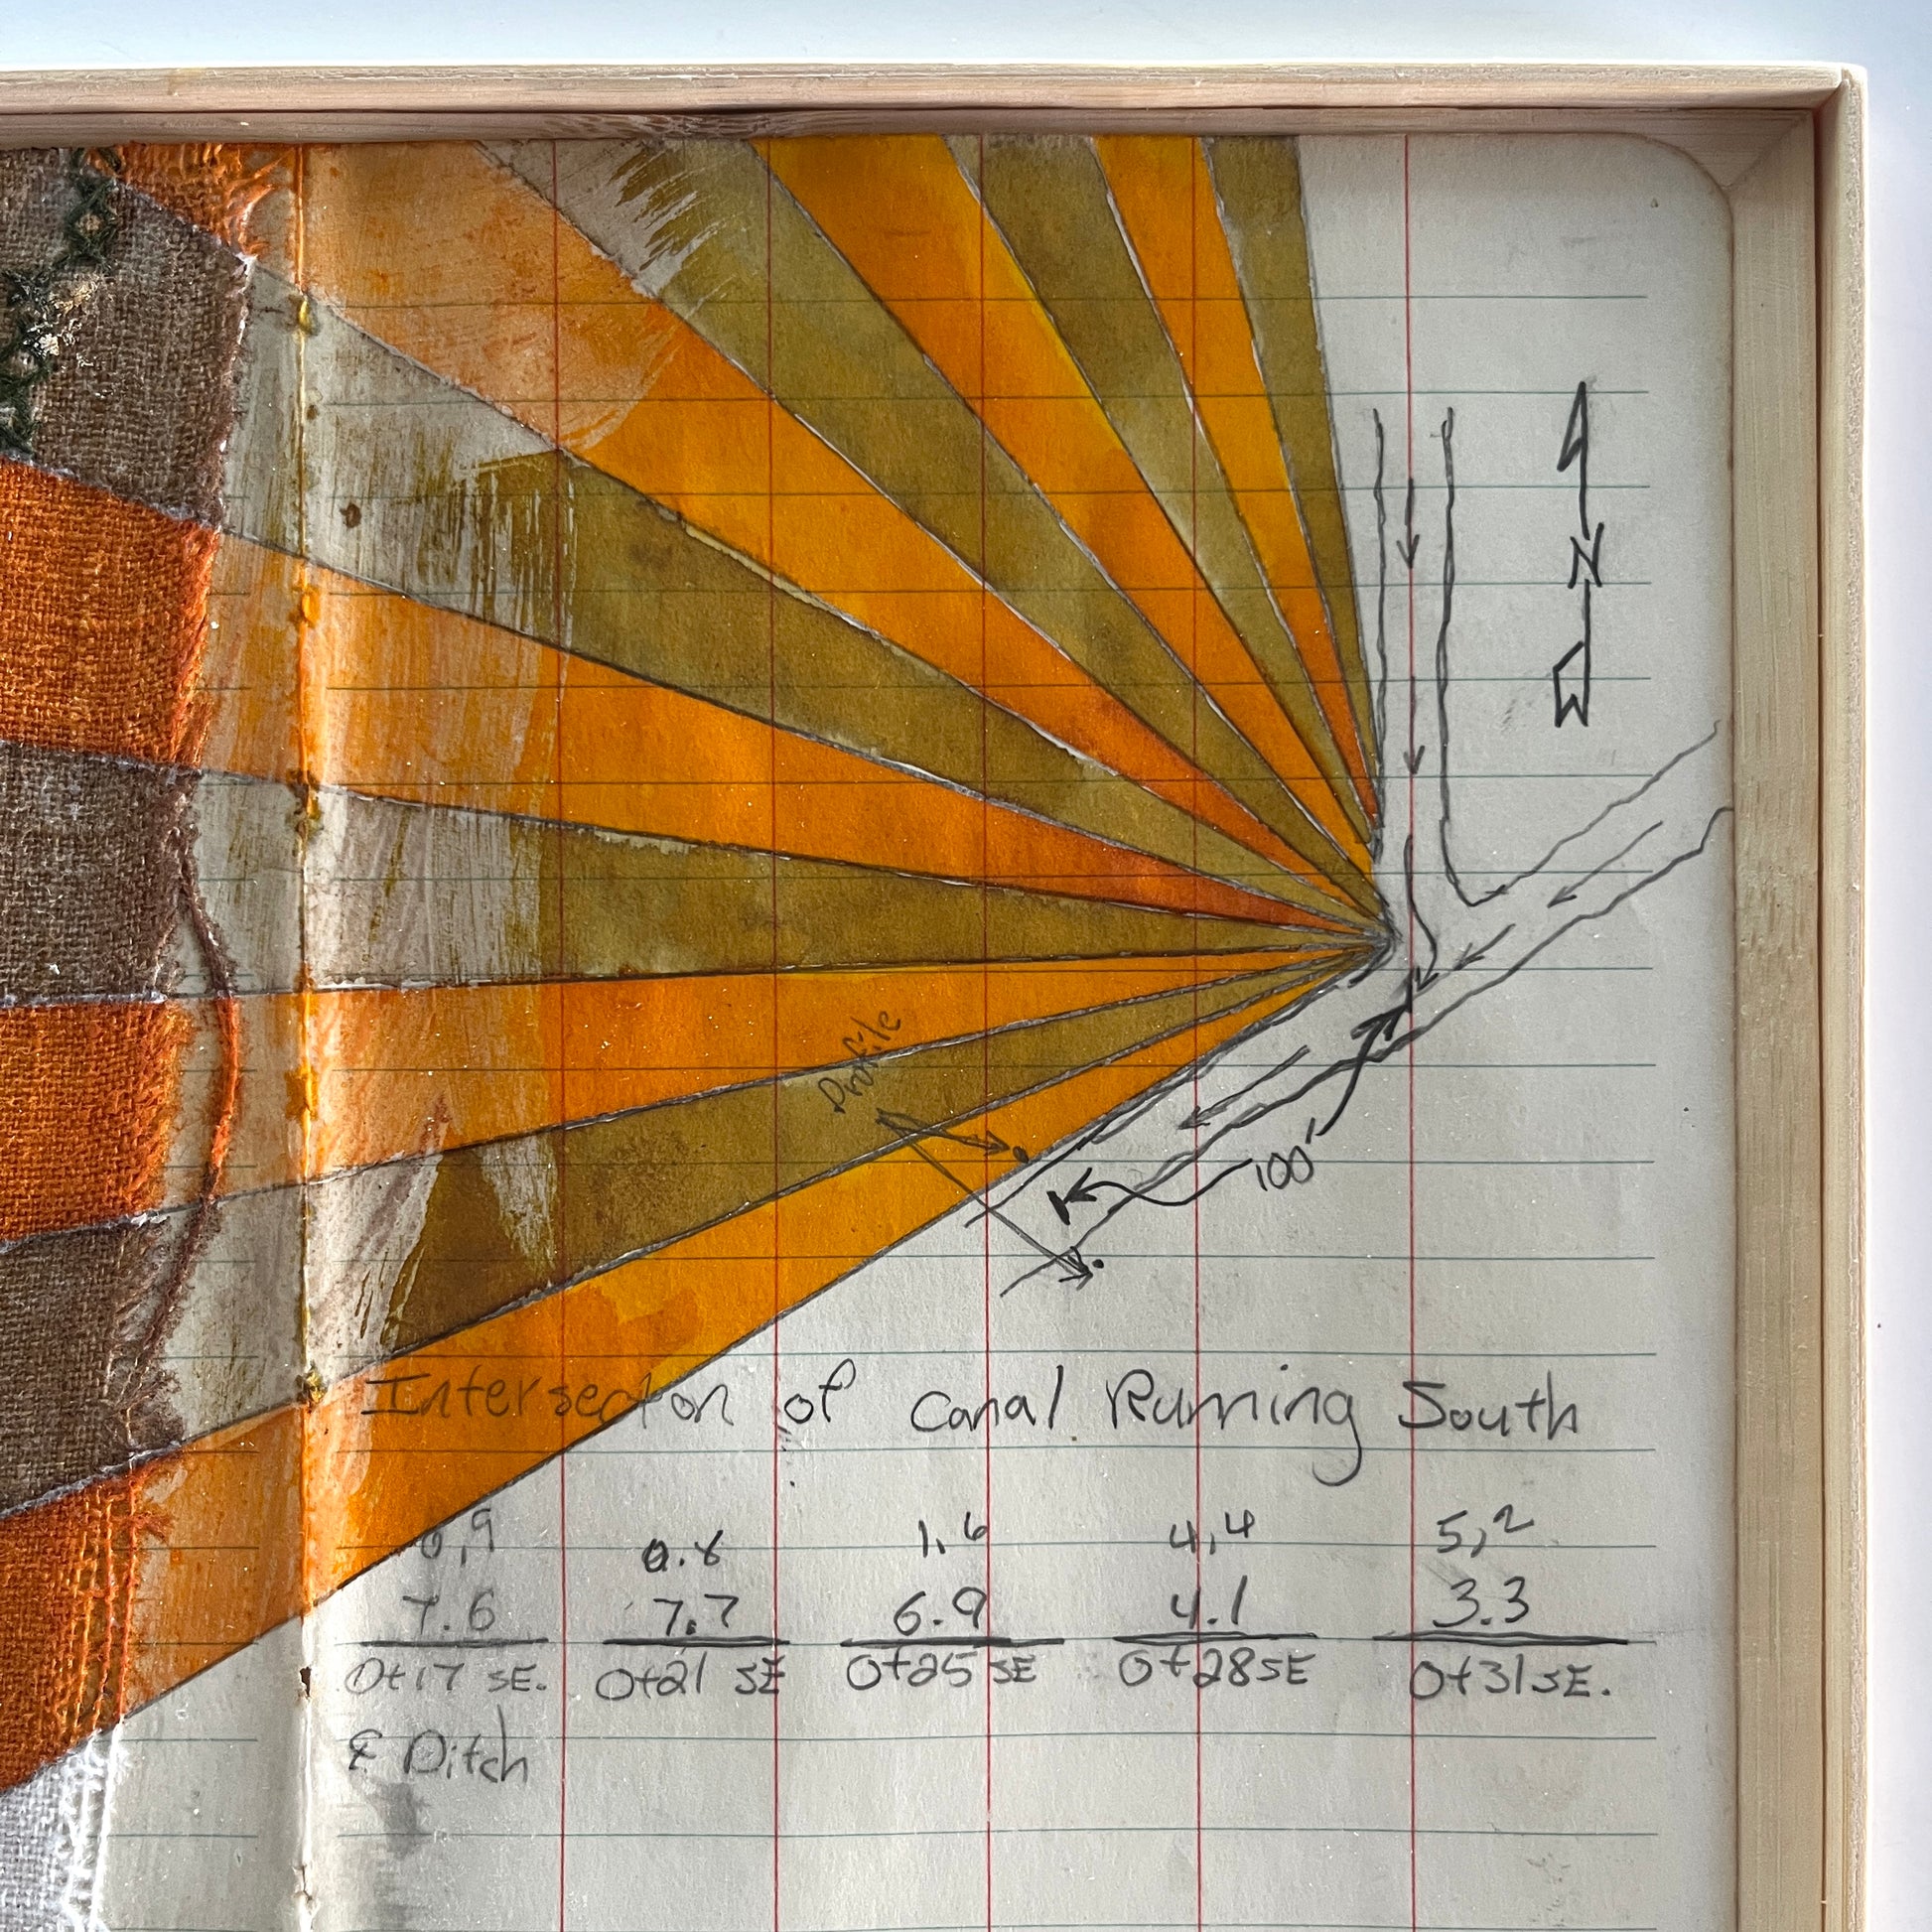 N
Profile
100'
Intersection of Canal Running South
0,9 0.8 1,6 4,4 5,2
7.6 7.7 6.9 4.1 3.3
0+17 SE. 0+21 SE 0+25 SE 0+28 SE 0+31 SE.
℄ Ditch